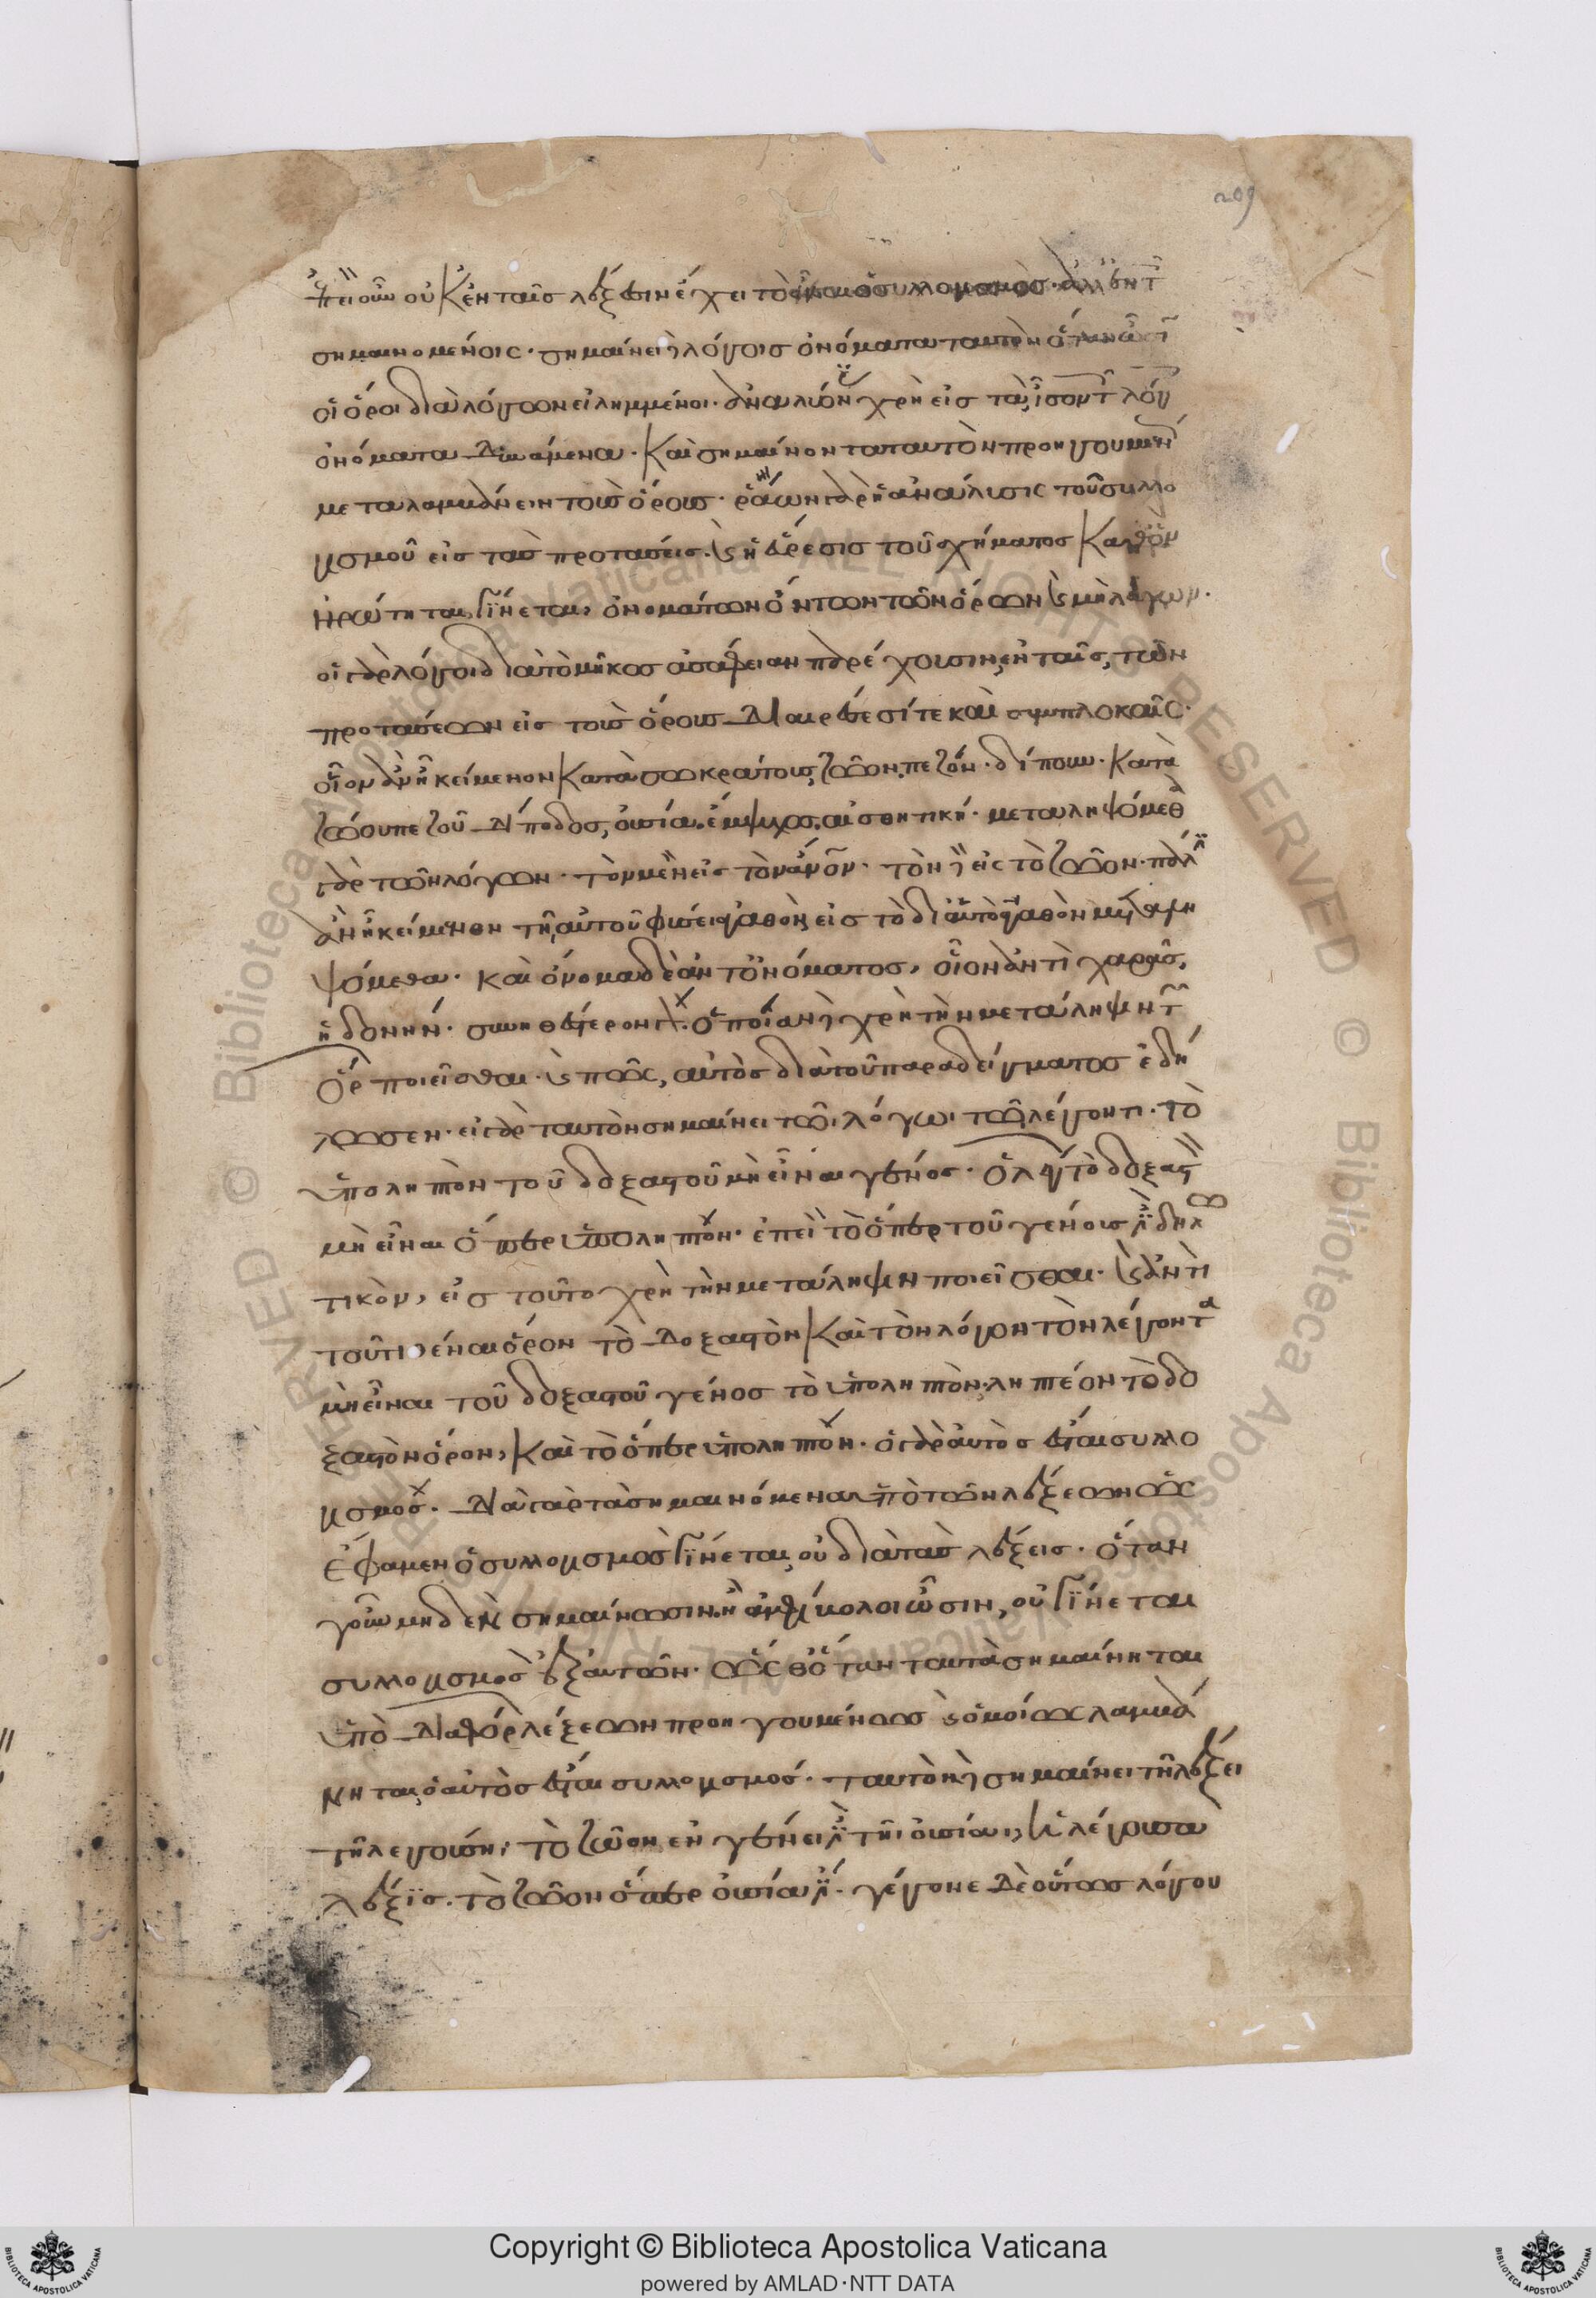 209
ἐπεὶ οὖν οὐκ ἐν ταῖς λέξεσιν ἔχει τὸ εἶναι ὁ συλλογισμὸς· ἀλλ' ἐν τοῖς
σημαινομένοις· σημαίνει δὲ λόγοις ὀνόματα ταυτὸν ὅταν ὦσιν
οἱ ὅροι διὰ λόγων εἰλημμένοι· ἐν ἀναλύσει χρὴ εἰς τὰ ἴσον τοῖς λόγοις
ὀνόματα δυνάμενα· καὶ σημαίνοντα ταυτὸν προηγουμένως
μεταλαμβάνειν τοὺς ὅρους· ῥάων γὰρ ἡ ἀνάλυσις τοῦ συλλο
γισμοῦ εἰς τὰς προτάσεις· καὶ ἡ εὕρεσις τοῦ σχήματος καθ' ὃ
ἠρώτηται γίνεται, ὀνομάτων ὄντων τῶν ὅρων καὶ μὴ λόγων·
οἱ γὰρ λόγοι διὰ τὸ μῆκος ἀσάφειαν παρέχουσιν ἐν ταῖς τῶν
προτάσεων εἰς τοὺς ὅρους διαιρέσεσί τε καὶ συμπλοκαῖς·
οἷον ἂν ᾖ κείμενον κατὰ σωκράτους ζῶον πεζὸν δίπουν· κατὰ
ζώου πεζοῦ δίποδος, οὐσία ἔμψυχος αἰσθητική· μεταληψόμεθα
γὰρ τῶν λόγων· τὸν μὲν εἰς τὸν ἄνον· τὸν δὲ εἰς τὸ ζῶον· πάλιν
ἂν ᾖ κείμενον τῇ αὐτοῦ φύσει ἀγαθὸν εἰς τὸ δι' αὐτὸ ἀγαθὸν μεταλη
ψόμεθα· καὶ ὄνομα δὲ ἀντ' ὀνόματος, οἷον ἀντὶ χαρᾶς,
ἡδονήν· συνηθέστερον γάρ· ὁποίαν δὲ χρὴ τὴν μετάληψιν τῶν
ὅρων ποιεῖσθαι· καὶ πῶς, αὐτὸς διὰ τοῦ παραδείγματος ἐδή
λωσεν· εἰ γὰρ ταυτὸν σημαίνει τῶι λόγωι τῶι λέγοντι· τὸ
ὑποληπτὸν τοῦ δοξαστοῦ μὴ εἶναι γένος· ὁ λέγων τὸ δοξαστὸν
μὴ εἶναι ὅπερ ὑποληπτόν· ἐπεὶ τὸ ὅπερ τοῦ γένους ἐστὶ δηλω
τικὸν, εἰς τοῦτο χρὴ τὴν μετάληψιν ποιεῖσθαι· καὶ ἀντὶ
τοῦ τιθέναι ὅρον τὸ δοξαστὸν καὶ τὸν λόγον τὸν λέγοντα
μὴ εἶναι τοῦ δοξαστοῦ γένος τὸ ὑποληπτὸν, ληπτέον τὸ δο
ξαστὸν ὅρον, καὶ τὸ ὅπερ ὑποληπτόν· ὁ γὰρ αὐτὸς ἔσται συλλο
γισμός· διὰ γὰρ τὰ σημαινόμενα ὑπὸ τῶν λέξεων ὡς
ἔφαμεν ὁ συλλογισμὸς γίνεται, οὐ διὰ τὰς λέξεις· ὅταν
γοῦν μηδὲν σημαίνωσιν ἢ ἀμφίβολοι ὦσιν, οὐ γίνεται
συλλογισμὸς ἐξ αὐτῶν· ὡς θ' ὅταν ταυτὰ σημαίνηται
ὑπὸ διαφόρων λέξεων προηγουμένως καὶ ὁμοίως λαμβά
νηται, ὁ αὐτὸς ἔσται συλλογισμός· ταυτὸν δὲ σημαίνει τῇ λέξει
τῇ λεγούσηι τὸ ζῶον ἐν γένει ἐστὶ τῆι οὐσίαι, καὶ ἡ λέγουσα
λέξις· τὸ ζῶον ὅπερ οὐσία ἐστί· γέγονε δὲ οὕτως λόγου
Copyright © Biblioteca Apostolica Vaticana
powered by AMLAD·NTT DATA